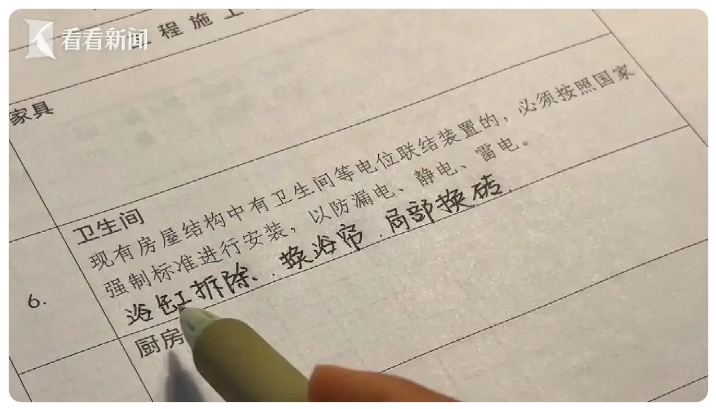 看看新闻
程施工
家具
卫生间
现有房屋结构中有卫生间等电位联结装置的，必须按照国家
强制标准进行安装，以防漏电、静电、雷电。
6.
浴缸拆除、换浴帘、局部换砖
厨房